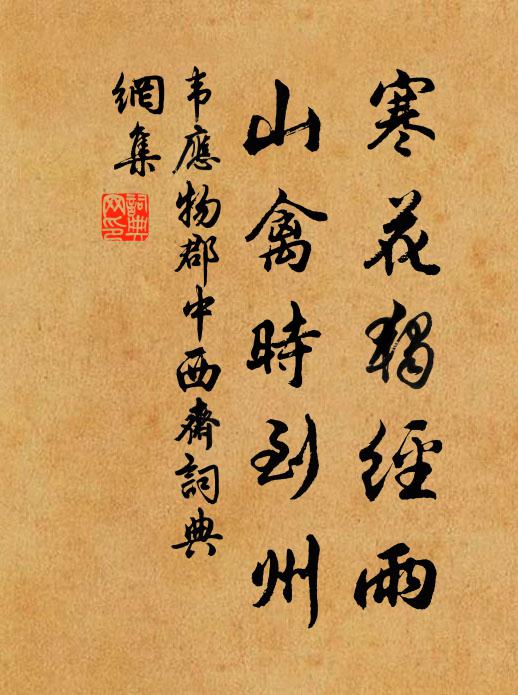 寒花獨經雨
山禽時到州
韦應物郡中西齋詞典
網集
詞典网印